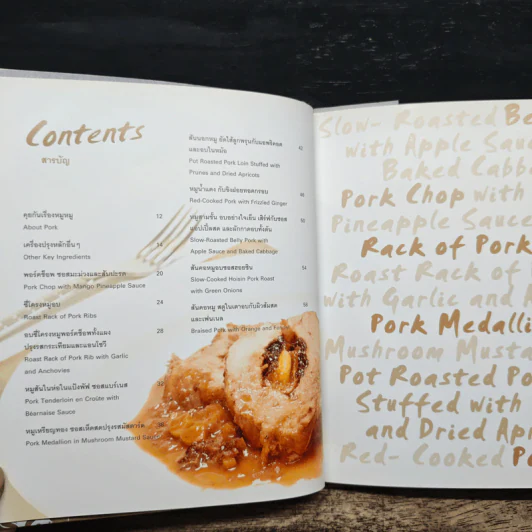 Contents
สารบัญ
คุยกันเรื่องหมูหมู 12
About Pork
เครื่องปรุงหลักอื่นๆ 14
Other Key Ingredients
พอร์คช็อพ ซอสมะม่วงและสับปะรด 20
Pork Chop with Mango Pineapple Sauce
ซี่โครงหมูอบ 24
Roast Rack of Pork Ribs
อบซี่โครงหมูพอร์คช็อพทั้งแผง 28
ปรุงรสกระเทียมและแอนโชวี
Roast Rack of Pork Rib with Garlic
and Anchovies
หมูสันในห่อในแป้งพัฟ ซอสแบร์เนส 32
Pork Tenderloin en Croûte with
Béarnaise Sauce
หมูเหรียญทอง ซอสเห็ดสดปรุงรสมัสตาร์ด
Pork Medallion in Mushroom Mustard Sauce
สันนอกหมู ยัดไส้ลูกพรุนกับแอพริคอต 42
และอบในหม้อ
Pot Roasted Pork Loin Stuffed with
Prunes and Dried Apricots
หมูน้ำแดง กับขิงฝอยทอดกรอบ 46
Red-Cooked Pork with Frizzled Ginger
หมูสามชั้น อบอย่างใจเย็น เสิร์ฟกับซอส 50
แอปเปิ้ลสด และผักกาดอบทั้งต้น
Slow-Roasted Belly Pork with
Apple Sauce and Baked Cabbage
สันคอหมูอบซอสฮอยซิน 54
Slow-Cooked Hoisin Pork Roast
with Green Onions
สันคอหมู สตูในเตาอบกับผิวส้มสด
และเฟนเนล
Braised Pork with Orange and Fennel
Slow- Roasted Be
with Apple Sauc
Baked Cabba
Pork Chop with
Pineapple Sauce
Rack of Pork
Roast Rack of
with Garlic and
Pork Medalli
Mushroom Musta
Pot Roasted Po
Stuffed with
and Dried Apr
Red- Cooked Po